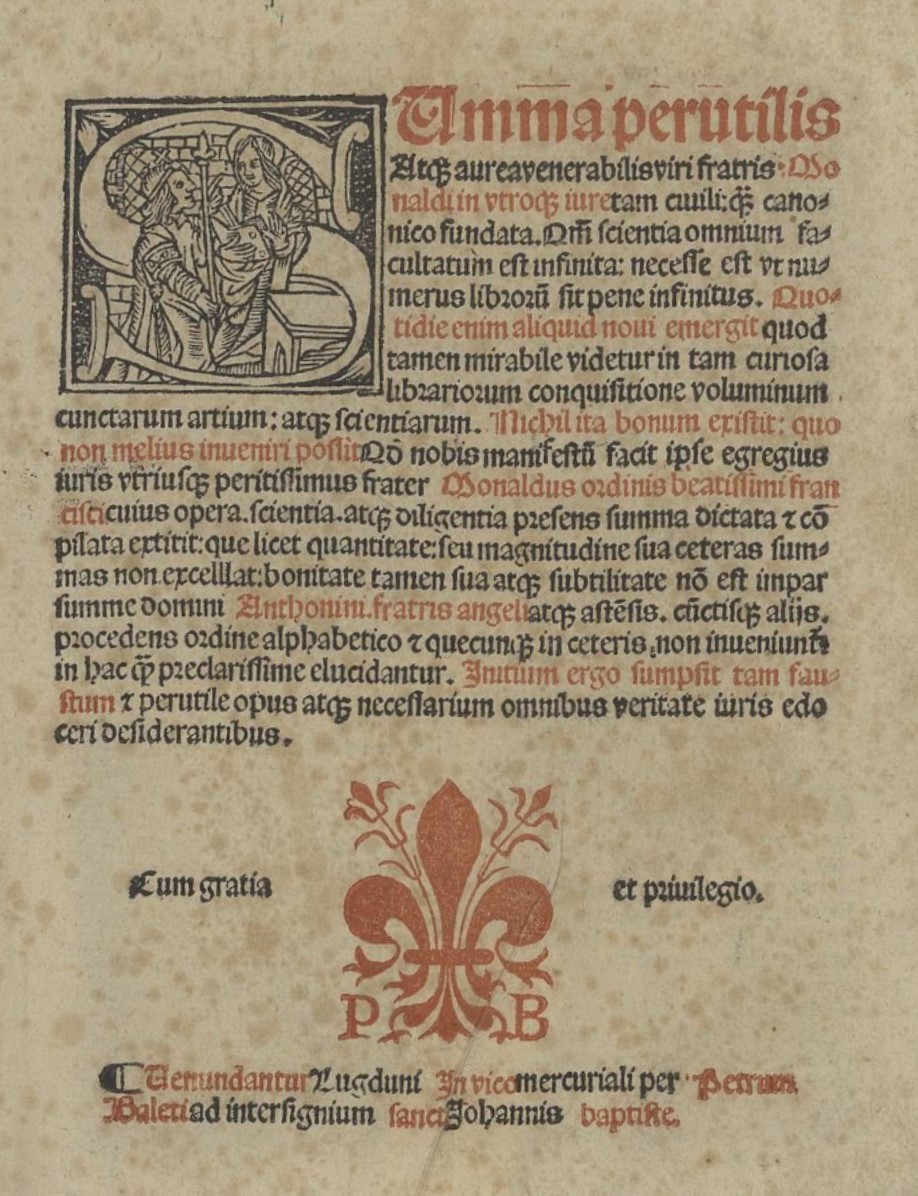 SUmma perutilis
Atqꝫ aurea venerabilis viri fratris Mo
naldi in vtroqꝫ iure tam ciuili: qȝ̃ cano⸗
nico fundata. Qm̃ scientia omnium fa⸗
cultatum est infinita: necesse est vt nu⸗
merus librorũ sit pene infinitus. Quo⸗
tidie enim aliquid noui emergit quod
tamen mirabile videtur in tam curiosa
librariorum conquisitione voluminum
cunctarum artium: atqꝫ scientiarum. Nichil ita bonum existit: quo
non melius inueniri possit Qđ nobis manifestũ facit ipse egregius
iuris vtriusqꝫ peritissimus frater Monaldus ordinis beatissimi fran
cisci cuius opera. scientia. atqꝫ diligentia presens summa dictata ⁊ cõ
pilata extitit: que licet quantitate: seu magnitudine sua ceteras sum⸗
mas non excelllat: bonitate tamen sua atqꝫ subtilitate nõ est impar
summe domini Anthonini. fratris angeli atqꝫ astẽsis. cũctisqꝫ alijs.
procedens ordine alphabetico ⁊ quecunqꝫ in ceteris non inueniunt̃
in hac qȝ̃ preclarissime elucidantur. Initium ergo sumpsit tam fau⸗
stum ⁊ perutile opus atqꝫ necessarium omnibus veritate iuris edo
ceri desiderantibus.
Cum gratia et priuilegio.
P B
¶ Uenundantur Lugduni In vico mercuriali per Petrum
Baleti ad intersignium sancti Johannis baptiste.